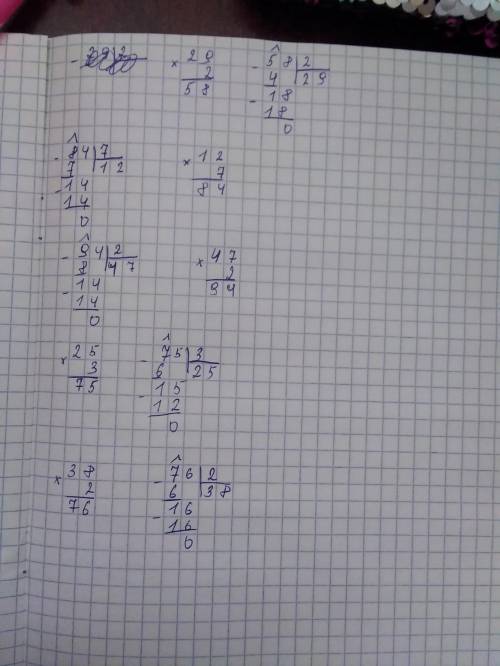 - × 29 - 58 | 2
2 4 | 29
58 - 18
18
0
- 84 | 7 × 12
7 | 12 7
- 14 84
14
0
- 94 | 2 × 47
8 | 47 2
- 14 94
14
0
× 25 - 75 | 3
3 6 | 25
75 - 15
12
0
× 38 - 76 | 2
2 6 | 38
76 - 16
16
0